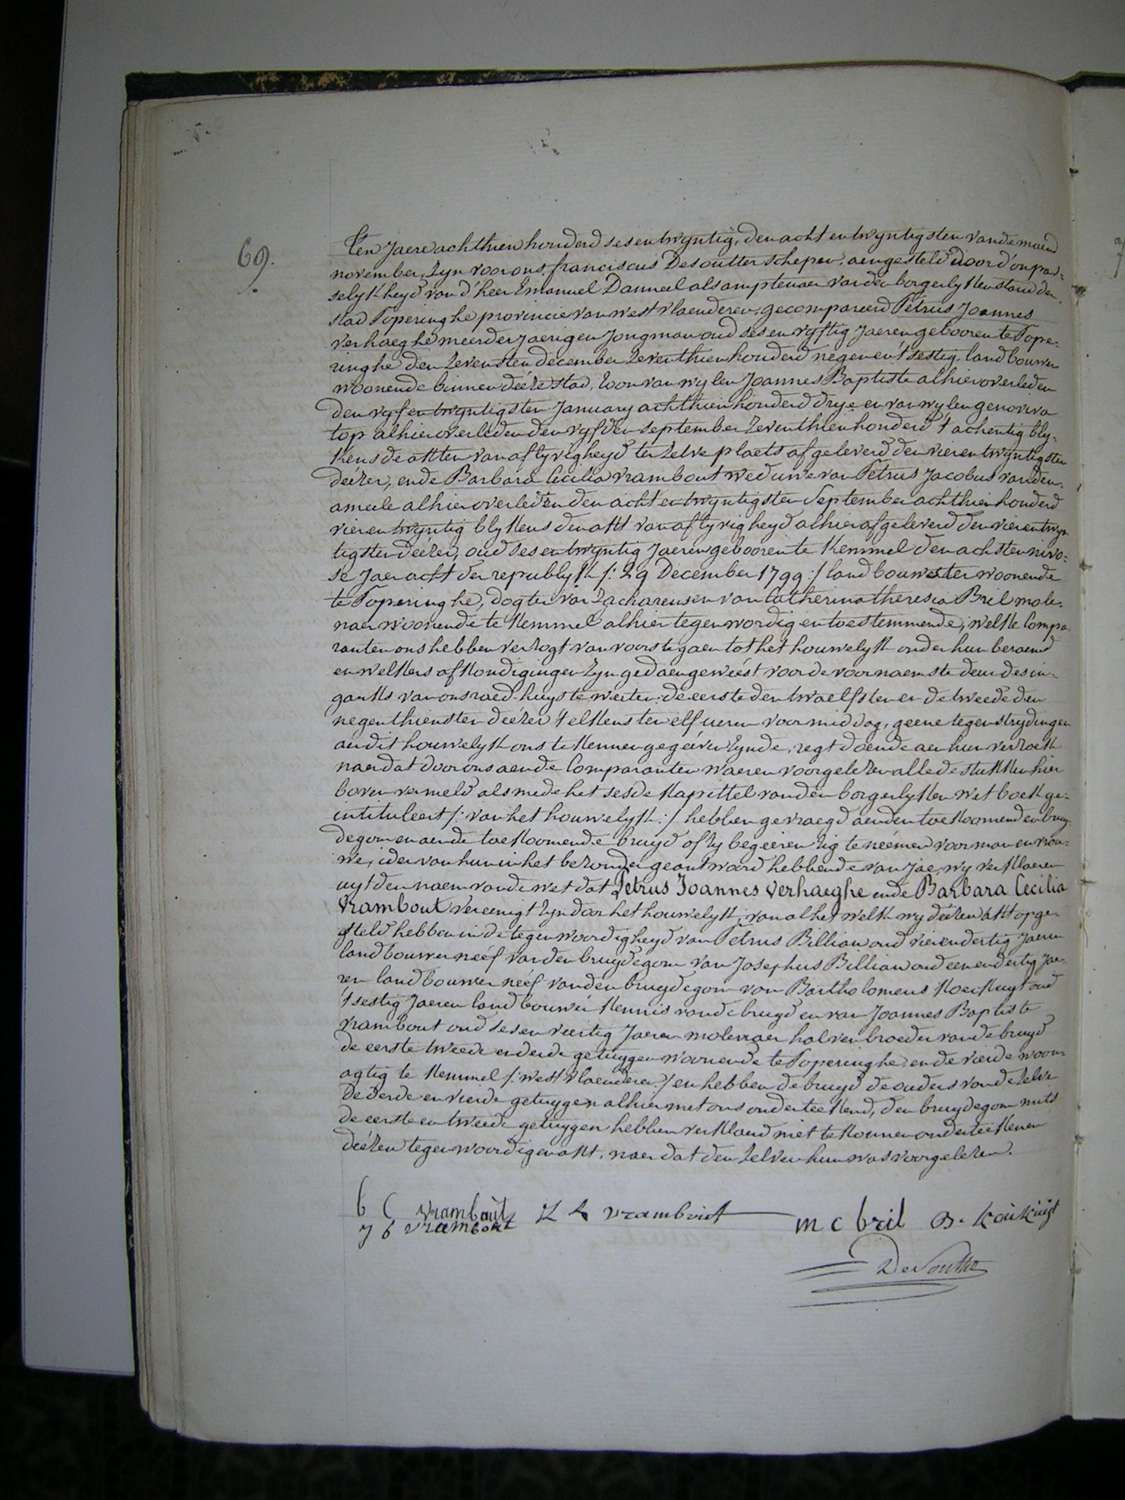 69.
Ten Jaere achthien honderd ses en twyntig, den acht en twyntigsten van de maend
november, zyn voor ons franciscus Desoutter schepen, aengesteld door d'onpas-
selykheyd van d'heer Emanuel Danneel als amptenaer van den borgerlyken stand der
stad Poperinghe provincie van westvlaenderen, gecompareerd Petrus Joannes
verhaeghe meerderjaerigen Jongman oud ses en vyftig Jaeren gebooren te Pope-
ringhe den zevensten december zeventhien honderd negen en 't sestig, landbouwer
woonende binnen deéze stad, zoon van wylen Joannes Baptiste alhier overleden
den vyf en twyntigsten January achthien honderd drye en van wylen genoveva
top alhier overleden den vyfden september zeventhien honderd t'achentig bly-
kens de akten van aflyvigheyd ter zelve plaets afgeleverd den vier en twyntigsten
deézer, ende Barbara Cecilia vrambout weduwe van Petrus Jacobus vanden-
ameele alhier overleden den acht en twyntigsten September achthien honderd
vier en twyntig blykens den akt van aflyvigheyd alhier afgeleverd den vier en twyn-
tigsten deézer, oud ses en twyntig Jaeren gebooren te Kemmel den achsten nivo-
se Jaer acht der republyk /: 29 December 1799 :/ landbouwester woonende
te Poperinghe, dogter van Zachareus en van Catherina theresia Bril mole-
naer woonende te Kemmel alhier tegenwordig en toestemmende, welke compa-
ranten ons hebben verzogt van voorts te gaen tot het houwelyk onder hun beraemd
en welkers afkondigingen zyn gedaen geweést voor de voornaemste deur des in-
ganks van ons raed-huys te weéten: de eerste den twaelfsten en de tweede den
negenthiensten deézer telkens ten elf ueren voormiddag, geene tegenstrydingen
aen dit houwelyk ons te kennen gegeéven zynde, regt doende aen hun verzoek
naer dat door ons aen de Comparanten waeren voorgelezen alle de stukken hier
boven vermeld als mede het sesde Kapittel van den borgerlyken wetboek ge-
intituleert /: van het houwelyk :/ hebben gevraegd aen den toekoomenden bruy-
degom en aen de toekoomende bruyd of zy begeéren zig te neémen voor man en vrou-
we, ider van hun in het bezonder geantword hebbende van Jae, wy verklaeren
uyt den naem van de wet dat Petrus Joannes verhaeghe ende Barbara Cecilia
vrambout vereenigt zyn door het houwelyk, van al het welk wy deézen akt opge-
steld hebben in de tegenwoordigheyd van Petrus Billiau oud vier en dertig Jaeren
landbouwer neéf van den bruydegom van Josephus Billiau oud een en dertig Jae-
ren landbouwer neéf van den bruydegom van Bartholomeus Koekuyt oud
't sestig Jaeren landbouwer kennis van de bruyd en van Joannes Baptiste
vrambout oud ses en viertig Jaeren molenaer halven broeder van de bruyd
de eerste tweede en derde getuygen woonende te Poperinghe en de vierde woon-
agtig te Kemmel /: westvlaenderen :/ en hebben de bruyd de ouders van de zelve
de derde en vierde getuygen alhier met ons onderteekend, den bruydegom mits
de eerste en tweede getuygen hebben verklaerd niet te konnen onderteekenen
deézen tegenwoordigen akt, naer dat den zelven hun was voorgelezen.
b C vrambout vrambout m c bril B. koekuyt
J b vrambout
Desoutter